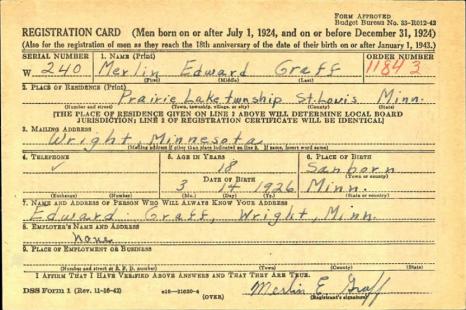 FORM APPROVED
Budget Bureau No. 33-R012-43
REGISTRATION CARD (Men born on or after July 1, 1924, and on or before December 31, 1924)
(Also for the registration of men as they reach the 18th anniversary of the date of their birth on or after January 1, 1943.)
SERIAL NUMBER 1. NAME (Print) ORDER NUMBER
W 240 Merlin Edward Graff 11843
(First) (Middle) (Last)
2. PLACE OF RESIDENCE (Print)
Prairie Lake twnship St. Louis Minn.
(Number and street) (Town, township, village, or city) (County) (State)
[THE PLACE OF RESIDENCE GIVEN ON LINE 2 ABOVE WILL DETERMINE LOCAL BOARD
JURISDICTION; LINE 2 OF REGISTRATION CERTIFICATE WILL BE IDENTICAL]
3. MAILING ADDRESS
Wright Minnesota
(Mailing address if other than place indicated on line 2. If same, insert word same)
4. TELEPHONE 5. AGE IN YEARS 6. PLACE OF BIRTH
✓ 18 Sanborn
DATE OF BIRTH (Town or county)
3 14 1926 Minn.
(Exchange) (Number) (Mo.) (Day) (Yr.) (State or country)
7. NAME AND ADDRESS OF PERSON WHO WILL ALWAYS KNOW YOUR ADDRESS
Edward Graff, Wright, Minn.
8. EMPLOYER'S NAME AND ADDRESS
none
9. PLACE OF EMPLOYMENT OR BUSINESS
(Number and street or R. F. D. number) (Town) (County) (State)
I AFFIRM THAT I HAVE VERIFIED ABOVE ANSWERS AND THAT THEY ARE TRUE.
DSS Form 1 (Rev. 11-16-42) (OVER) Merlin E Graff
(Registrant's signature)